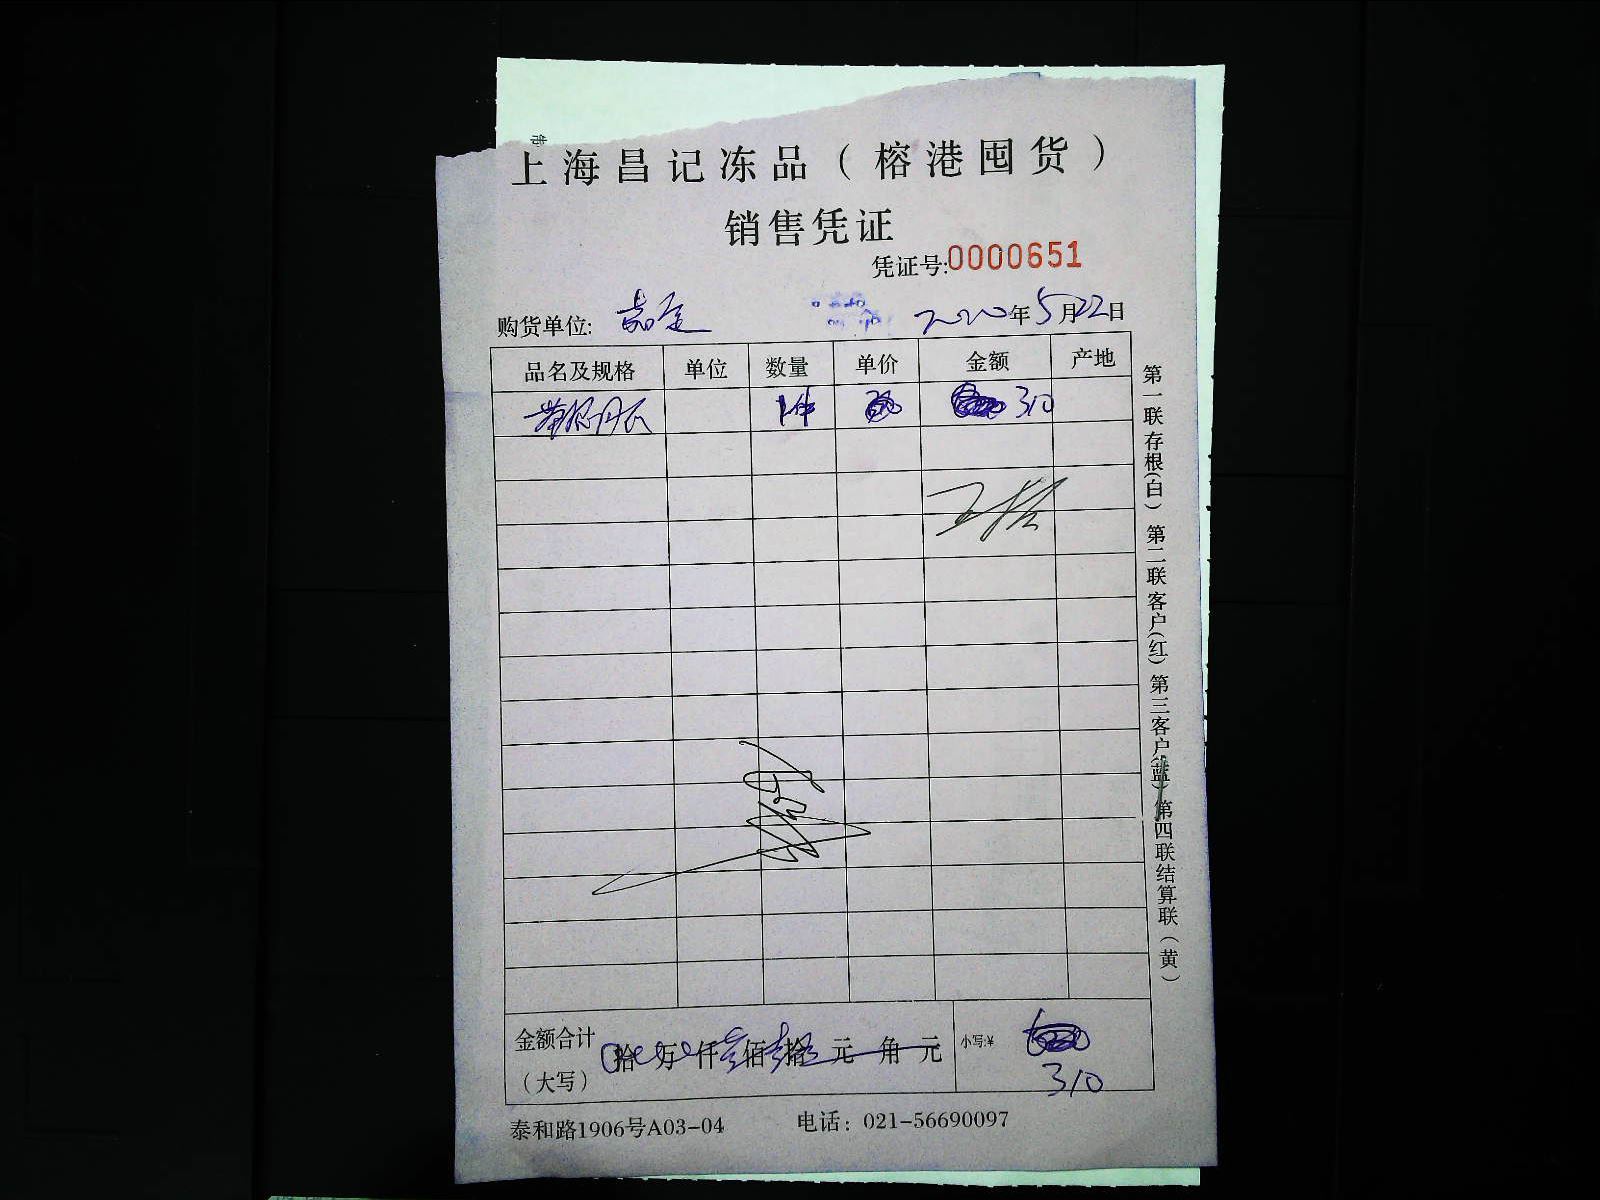 上海昌记冻品（榕港囤货）
销售凭证
凭证号:0000651
购货单位: 嘉定 2020年5月22日
品名及规格 单位 数量 单价 金额 产地
1件 310
金额合计（大写） 拾 万 仟 叁佰 壹拾 元 角 元 小写:¥ 310
泰和路1906号A03-04 电话：021-56690097
第一联存根(白) 第二联客户(红) 第三客户(蓝) 第四联结算联（黄）